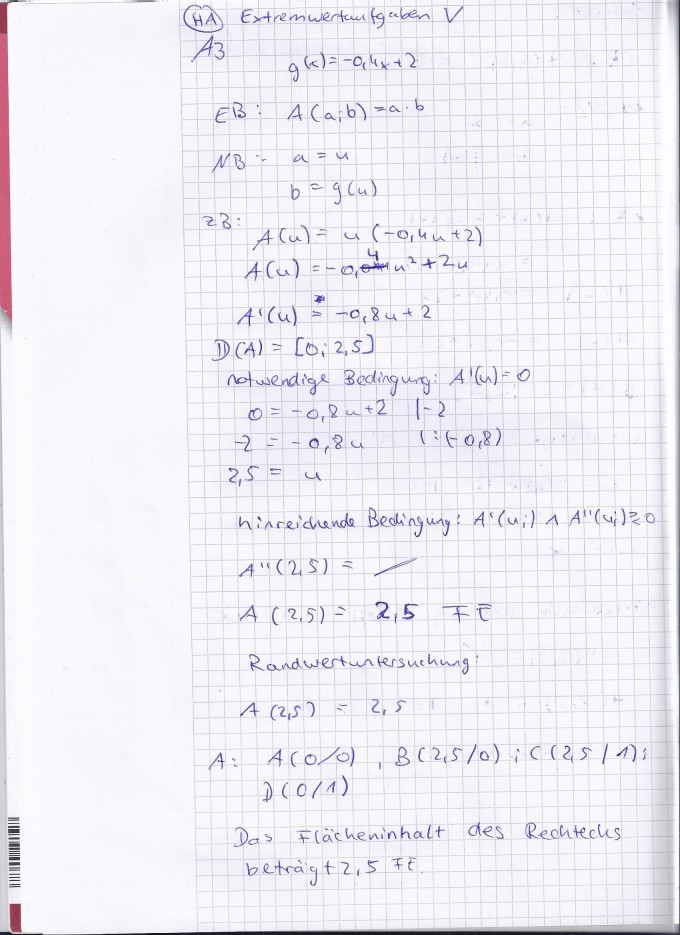 HA Extremwertaufgaben V
A3
g(x)=-0,4x+2
EB: A(a;b)=a·b
NB:- a = u
b = g(u)
ZB:
A(u) = u (-0,4u+2)
A(u) = -0,4u²+2u
A'(u) = -0,8u+2
D(A) = [0;2,5]
notwendige Bedingung: A'(u)=0
0 = -0,8u+2 |-2
-2 = -0,8u |:(-0,8)
2,5 = u
hinreichende Bedingung: A'(ui) ∧ A''(ui)≥0
A''(2,5) = /
A (2,5) = 2,5 FE
Randwertuntersuchung:
A(2,5) = 2,5
A: A(0/0) , B(2,5/0) ; C(2,5/1);
D(0/1)
Das Flächeninhalt des Rechtecks
beträgt 2,5 FE.